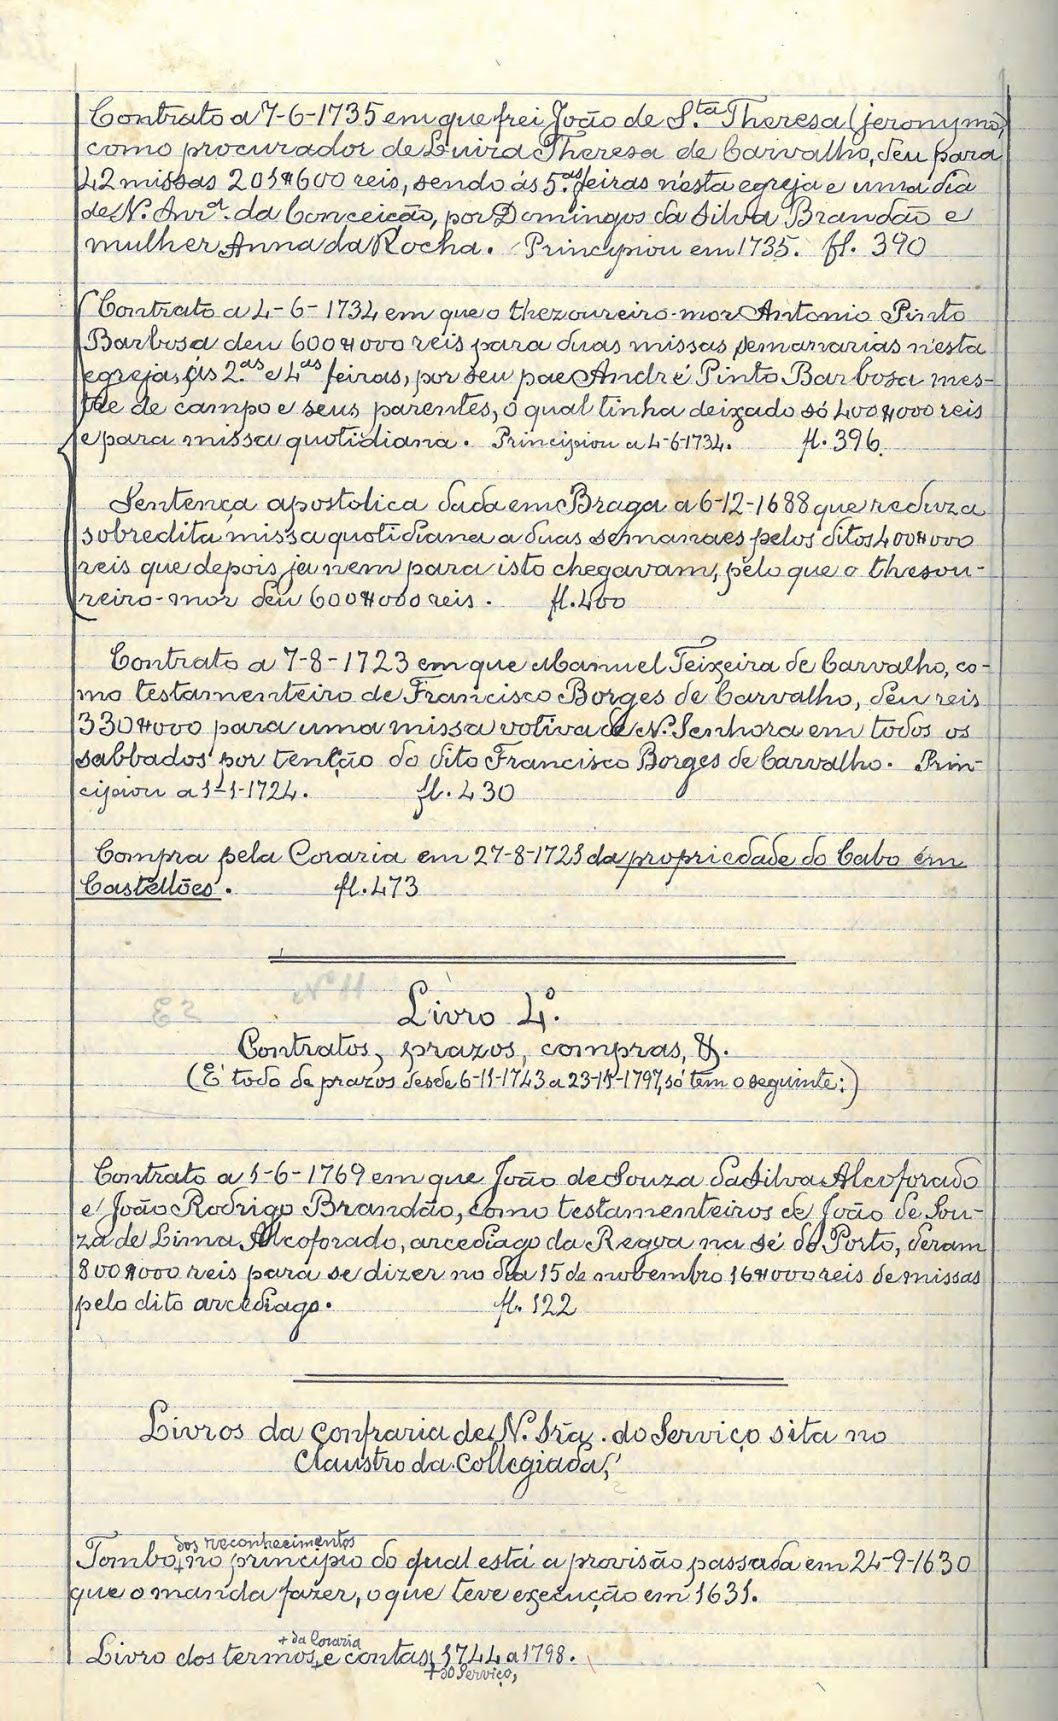 Contrato a 7-6-1735 em que frei João de S.ta Theresa (jeronymo)
como procurador de Luiza Theresa de Carvalho, deu para
42 missas 201$600 reis, sendo ás 5.as feiras n'esta egreja e uma dia
de N. Snr.a da Conceição, por Domingos da Silva Brandão e
mulher Anna da Rocha. Principiou em 1735. fl. 390
Contrato a 4-6-1734 em que o thezoureiro-mor Antonio Pinto
Barbosa deu 600$000 reis para duas missas semanarias n'esta
egreja, ás 2.as e 4.as feiras, por seu pae André Pinto Barbosa mes-
tre de campo e seus parentes, o qual tinha deixado só 400$000 reis
e para missa quotidiana. Principiou a 4-6-1734. fl. 396.
Sentença apostolica dada em Braga a 6-12-1688 que reduz a
sobredita missa quotidiana a duas semanaes pelos ditos 400$000
reis que depois ja nem para isto chegavam, pelo que o thesou-
reiro-mor deu 600$000 reis. fl. 400
Contrato a 7-8-1723 em que Manuel Teixeira de Carvalho, co-
mo testamenteiro de Francisco Borges de Carvalho, deu reis
330$000 para uma missa votiva de N. Senhora em todos os
sabbados por tenção do dito Francisco Borges de Carvalho. Prin-
cipiou a 1-1-1724. fl. 430
Compra pela Coraria em 27-8-1721 da propriedade do Cabo em
Castellões. fl. 473
Livro 4.º
Contratos, prazos, compras, &.
(É todo de prazos desde 6-11-1743 a 23-11-1797, só tem o seguinte:)
Contrato a 1-6-1769 em que João de Souza da Silva Alcoforado
e João Rodrigo Brandão, como testamenteiros de João de Sou-
za de Lima Alcoforado, arcediago da Regoa na sé do Porto, deram
800$000 reis para se dizer no dia 15 de novembro 16$000 reis de missas
pelo dito arcediago. fl. 122
Livros da confraria de N. Sr.a do Serviço sita no
Claustro da Collegiada,
dos reconhecimentos
Tombo + no principio do qual está a provisão passada em 24-9-1630
que o manda fazer, o que teve execução em 1631.
+ da Coraria
Livro dos termos + e contas + 1744 a 1798.
+ do Serviço,